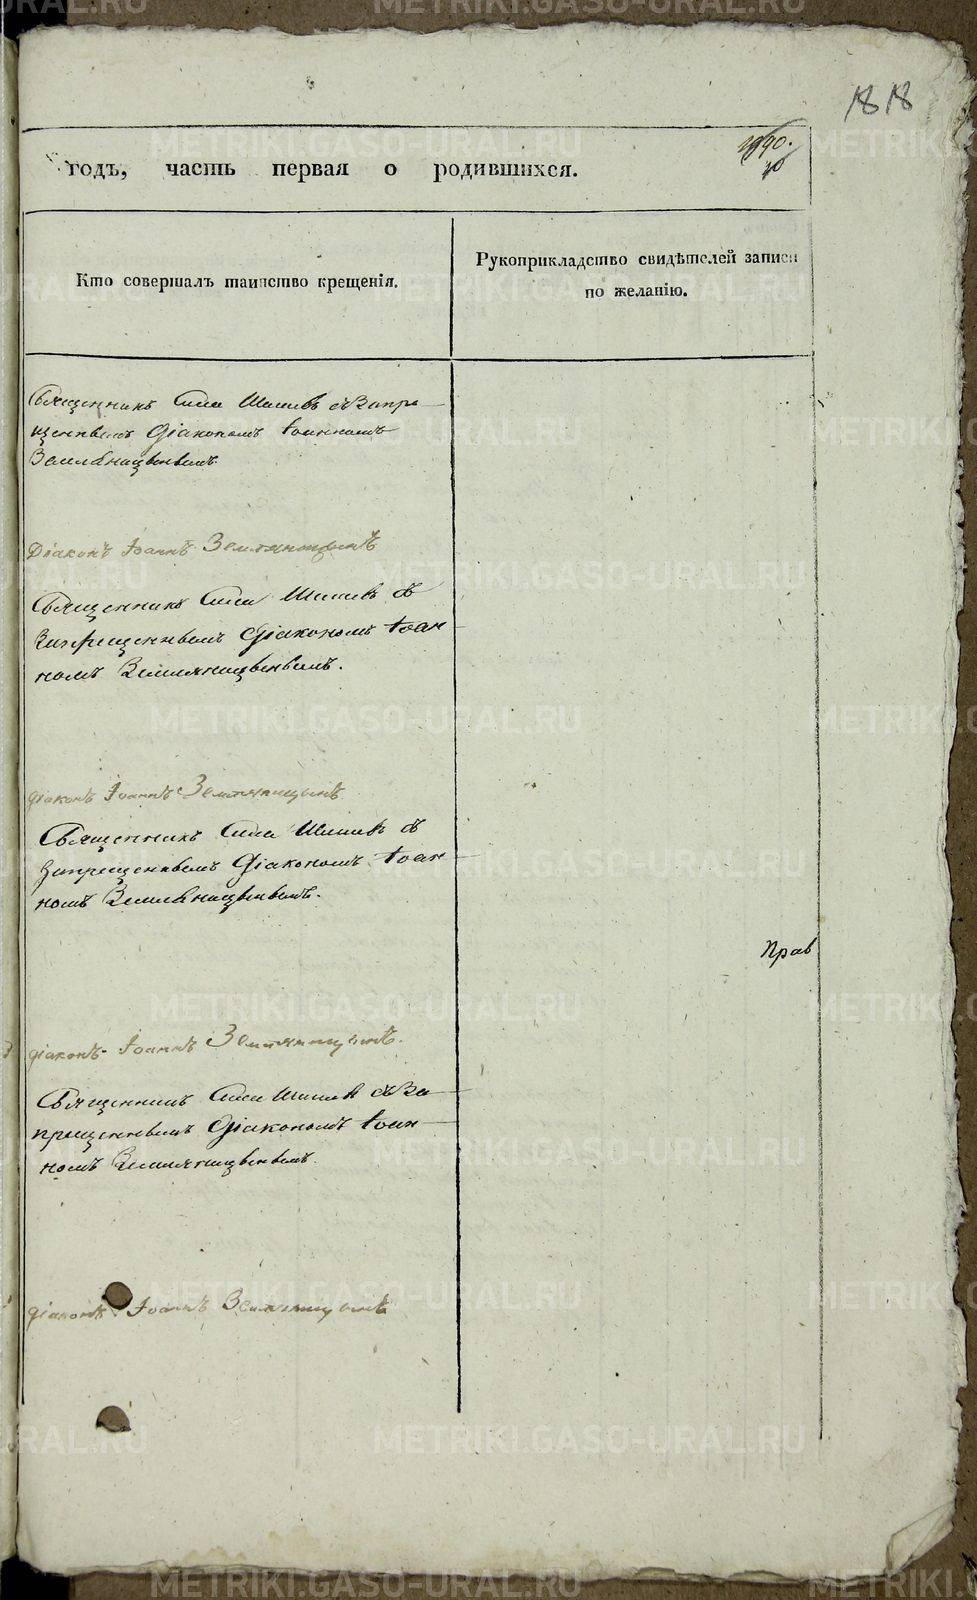 18 18
годъ, часть первая о родившихся.
Кто совершалъ таинство крещенія.
Рукоприкладство свидѣтелей записи
по желанію.
Священникъ Сила Шишевъ съ Запре
щеннымъ Діакономъ Іоанномъ
Земляницынымъ.
Діаконъ Іоаннъ Земляницынъ
Священникъ Сила Шишевъ съ
Запрещеннымъ Діакономъ Іоан
номъ Земляницынымъ.
діаконъ Іоаннъ Земляницынъ
Священникъ Сила Шишевъ съ
Запрещеннымъ Діакономъ Іоан
номъ Земляницынымъ.
Прав
діаконъ Іоаннъ Земляницынъ.
Священникъ Сила Шишевъ съ За
прещеннымъ Діакономъ Іоан
номъ Земляницынымъ.
діаконъ Іоаннъ Земляницынъ
METRIKI.GASO-URAL.RU